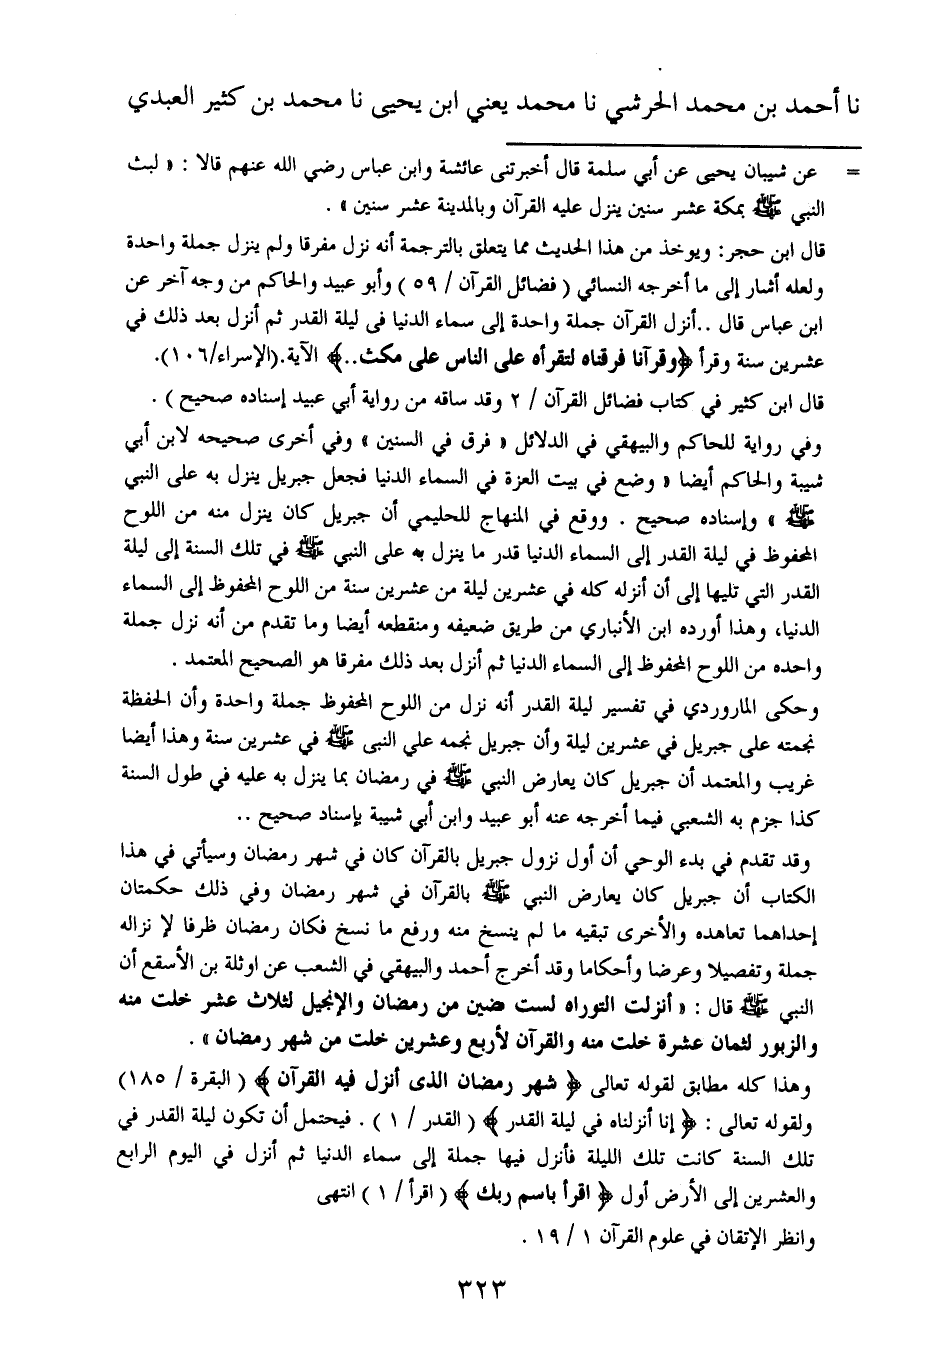 نا أحمد بن محمد الحرشي نا محمد يعني ابن يحيى نا محمد بن كثير العبدي
= عن شيبان يحيى عن أبي سلمة قال أخبرتنى عائشة وابن عباس رضي الله عنهم قالا : « لبث
النبي ﷺ بمكة عشر سنين ينزل عليه القرآن وبالمدينة عشر سنين » .
قال ابن حجر: ويوخذ من هذا الحديث مما يتعلق بالترجمة أنه نزل مفرقا ولم ينزل جملة واحدة
ولعله أشار إلى ما أخرجه النسائي ( فضائل القرآن / ٥٩ ) وأبو عبيد والحاكم من وجه آخر عن
ابن عباس قال ..أنزل القرآن جملة واحدة إلى سماء الدنيا فى ليلة القدر ثم أنزل بعد ذلك في
عشرين سنة وقرأ ﴿وقرآنا فرقناه لتقرأه على الناس على مكث..﴾ الآية.(الإسراء/١٠٦).
قال ابن كثير في كتاب فضائل القرآن / ٢ وقد ساقه من رواية أبي عبيد إسناده صحيح ) .
وفي رواية للحاكم والبيهقي في الدلائل « فرق في السنين » وفي أخرى صحيحه لابن أبي
شيبة والحاكم أيضا « وضع في بيت العزة في السماء الدنيا فجعل جبريل ينزل به على النبي
ﷺ » وإسناده صحيح . ووقع في المنهاج للحليمي أن جبريل كان ينزل منه من اللوح
المحفوظ في ليلة القدر إلى السماء الدنيا قدر ما ينزل به على النبي ﷺ في تلك السنة إلى ليلة
القدر التي تليها إلى أن أنزله كله في عشرين ليلة من عشرين سنة من اللوح المحفوظ إلى السماء
الدنيا، وهذا أورده ابن الأنباري من طريق ضعيفه ومنقطعه أيضا وما تقدم من أنه نزل جملة
واحده من اللوح المحفوظ إلى السماء الدنيا ثم أنزل بعد ذلك مفرقا هو الصحيح المعتمد .
وحكى الماروردي في تفسير ليلة القدر أنه نزل من اللوح المحفوظ جملة واحدة وأن الحفظة
نجمته على جبريل في عشرين ليلة وأن جبريل نجمه علي النبى ﷺ في عشرين سنة وهذا أيضا
غريب والمعتمد أن جبريل كان يعارض النبي ﷺ في رمضان بما ينزل به عليه في طول السنة
كذا جزم به الشعبي فيما أخرجه عنه أبو عبيد وابن أبي شيبة بإسناد صحيح ..
وقد تقدم في بدء الوحي أن أول نزول جبريل بالقرآن كان في شهر رمضان وسيأتي في هذا
الكتاب أن جبريل كان يعارض النبي ﷺ بالقرآن في شهر رمضان وفي ذلك حكمتان
إحداهما تعاهده والأخرى تبقيه ما لم ينسخ منه ورفع ما نسخ فكان رمضان ظرفا لإ نزاله
جملة وتفصيلا وعرضا وأحكاما وقد أخرج أحمد والبيهقي في الشعب عن اوثلة بن الأسقع أن
النبي ﷺ قال : « أنزلت التوراه لست مضين من رمضان والإنجيل لثلاث عشر خلت منه
والزبور لثمان عشرة خلت منه والقرآن لأربع وعشرين خلت من شهر رمضان » .
وهذا كله مطابق لقوله تعالى ﴿ شهر رمضان الذى أنزل فيه القرآن ﴾ ( البقرة / ١٨٥)
ولقوله تعالى : ﴿ إنا أنزلناه في ليلة القدر ﴾ ( القدر / ١ ) . فيحتمل أن تكون ليلة القدر في
تلك السنة كانت تلك الليلة فأنزل فيها جملة إلى سماء الدنيا ثم أنزل في اليوم الرابع
والعشرين إلى الأرض أول ﴿ اقرأ باسم ربك ﴾ ( اقرأ / ١ ) انتهى
وانظر الإتقان في علوم القرآن ١ / ١٩ .
٣٢٣